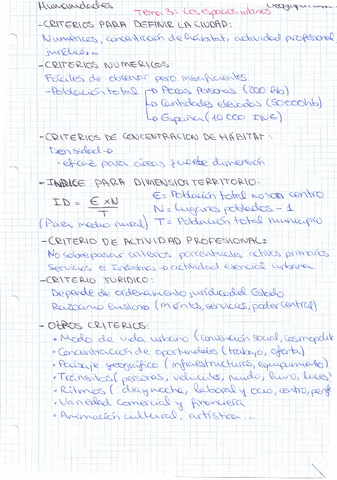 Humanidades
Tema 3: Los espacios urbanos
-CRITERIOS PARA DEFINIR LA CIUDAD:
Numéricos, concentración de hábitat, actividad profesional
jurídico...
-CRITERIOS NUMERICOS:
Fáciles de observar pero insuficientes.
-Población total → Pocas Personas (200 hb)
→ Cantidades elevadas (50000hb)
→ España (10 000 INE)
-CRITERIOS DE CONCENTRACION DE HÁBITAT:
Densidad →
-eficaz para áreas fuerte dimensión
-INDICE PARA DIMENSION TERRITORIO:
ID = E x N / T
E= Población total no son centro
N= Lugares poblados - 1
(Para medio rural) T= Población total municipio
-CRITERIO DE ACTIVIDAD PROFESIONAL:
No sobrepasar criterios porcentuales activos primarios
Servicios e Industria → actividad esencial urbana
-CRITERIO JURIDICO:
Depende de ordenamiento jurídico del Estado
(méritos, servicios, poder central)
-OTROS CRITERIOS:
• Modo de vida urbano (convención social, cosmopolit
• Concentración de oportunidades (trabajo, oferta)
• Paisaje geográfico (infraestructuras, equipamiento)
• Tránsitos (personas, vehículos, ruido, humo, luces)
• Ritmos (día y noche, laboral y ocio, centro, perif
• Variedad comercial y financiera
• Animación cultural, artística...